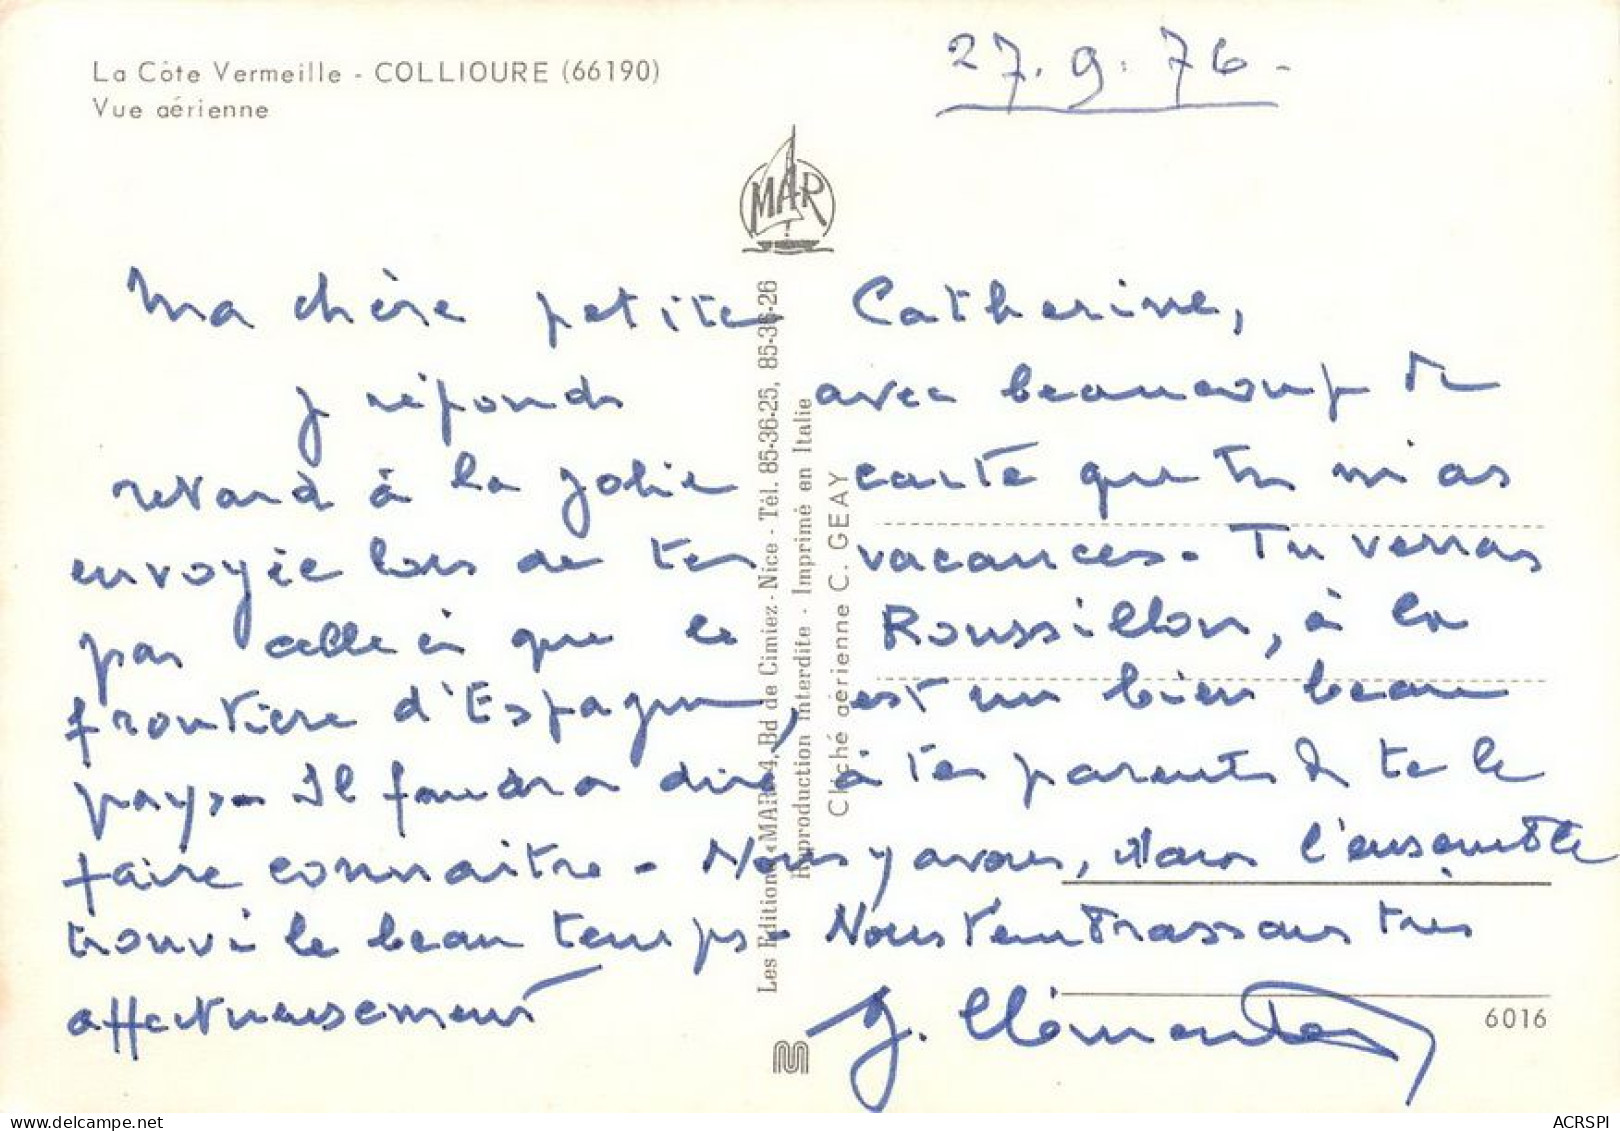 La Côte Vermeille - COLLIOURE (66190)
Vue aérienne
27.9.76-
MAR
Ma chère petite Catherine,
J réponds avec beaucoup de
retard à la jolie carte que tu m'as
envoyée lors de tes vacances. Tu verras
par celle ci que le Roussillon, à la
frontière d'Espagne, est un bien beau
pays. Il faudra dire à tes parents de te le
faire connaitre. Nous y avons, dans l'ensemble
trouvé le beau temps. Nous t'embrassons très
affectueusement
Les Editions «MAR» 4, Bd de Cimiez - Nice - Tél. 85-36-25, 85-36-26
Reproduction interdite - Imprimé en Italie
Cliché aérienne C. GEAY
6016
ACRSPI